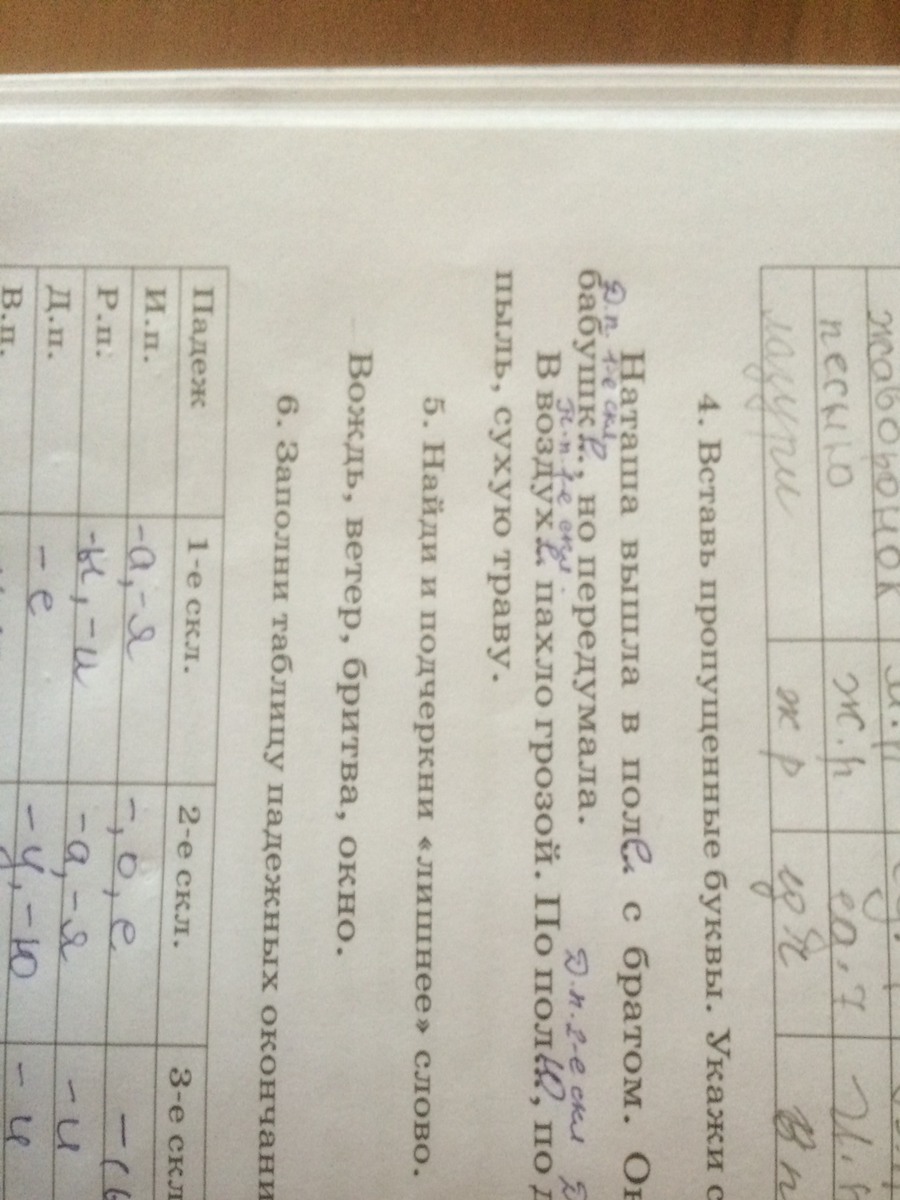 жаворонок
песню ж.р ед.ч И.п
ж р В п
4. Вставь пропущенные буквы. Укажи с
Наташа вышла в поле с братом. Он
Д.п. 1-е скл Д.п. 2-е скл Д
бабушке, но передумала.
П.п 1-е скл.
В воздухе пахло грозой. По полю, по д
пыль, сухую траву.
5. Найди и подчеркни «лишнее» слово.
Вождь, ветер, бритва, окно.
6. Заполни таблицу падежных окончани
Падеж 1-е скл. 2-е скл. 3-е скл
И.п. -а, -я -, о, е -(ь
Р.п. -ы, -и -а, -я -и
Д.п. -е -у, -ю -и
В.п.